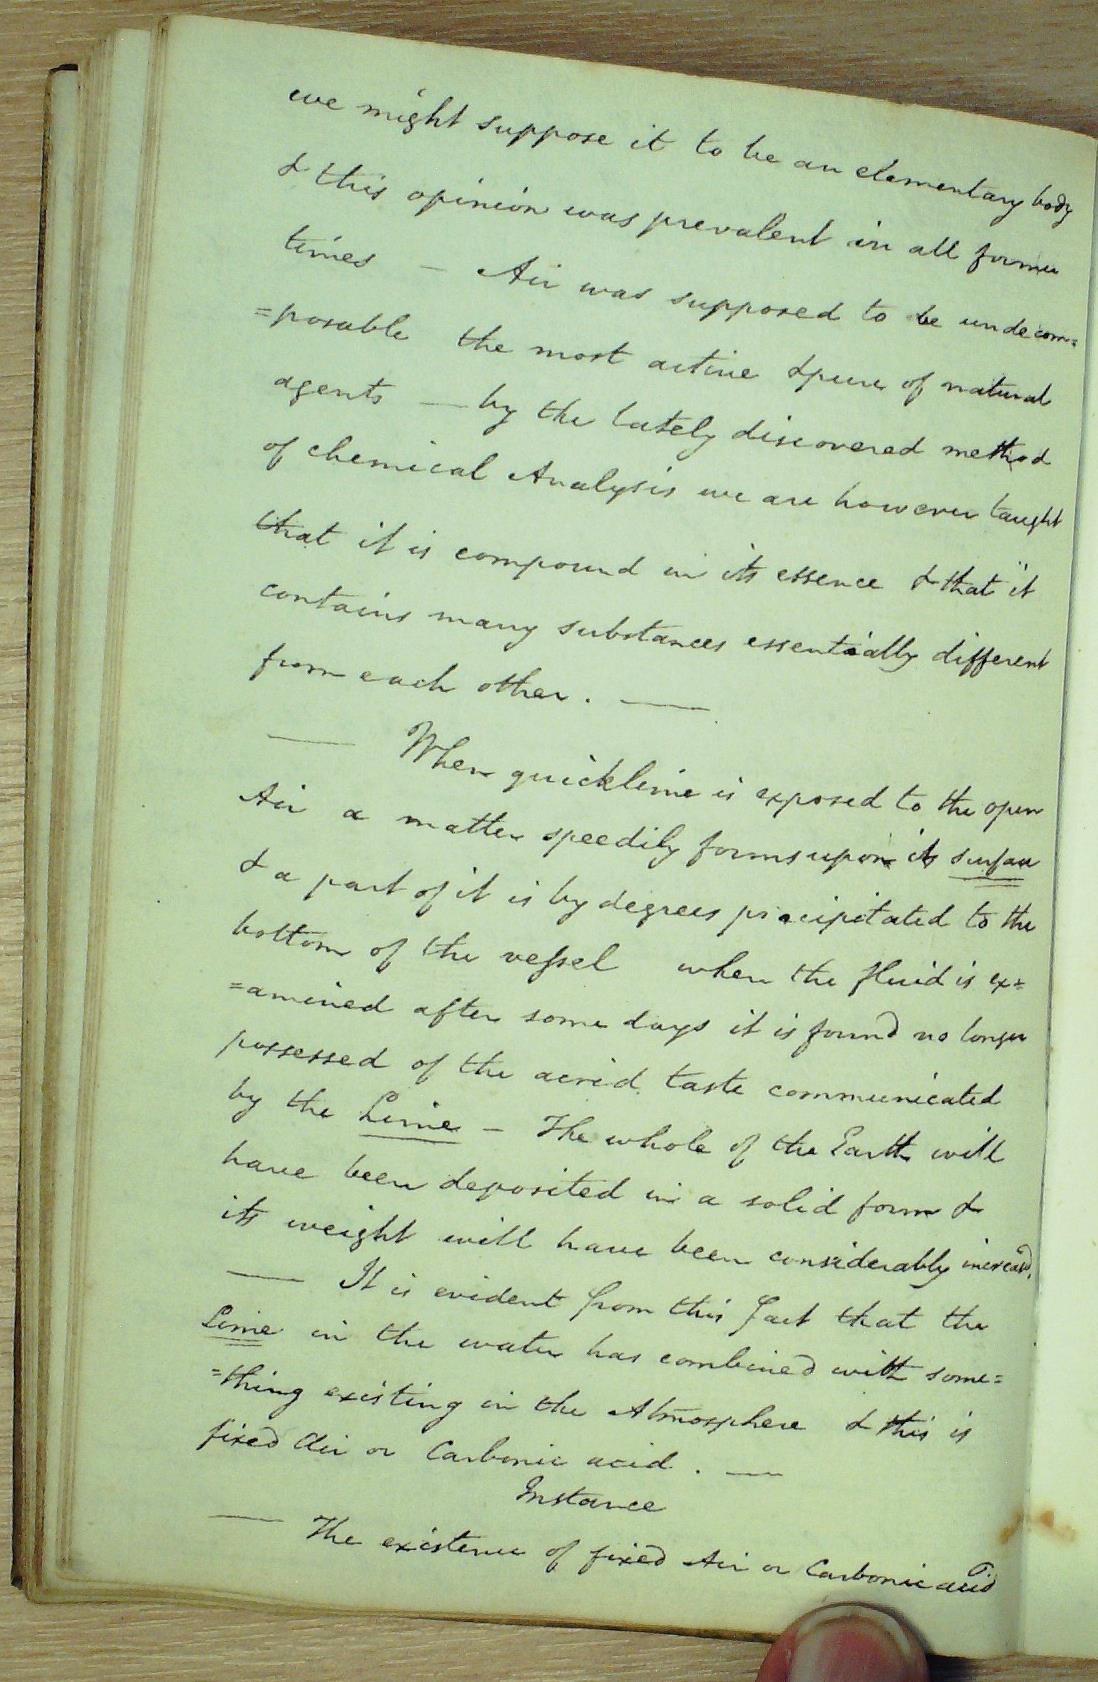 we might suppose it to be an elementary body
& this opinion was prevalent in all former
times — Air was supposed to be undecom=
=posable the most active & pure of natural
agents — by the lately discovered method
of chemical Analysis we are however taught
that it is compound in its essence & that it
contains many substances essentially different
from each other. —
— When quicklime is exposed to the open
Air a matter speedily forms upon its surface
& a part of it is by degrees precipitated to the
bottom of the vessel when the fluid is ex=
=amined after some days it is found no longer
possessed of the acrid taste communicated
by the Lime — The whole of the Earth will
have been deposited in a solid form &
its weight will have been considerably increasd.
— It is evident from this fact that the
Lime in the water has combined with some=
=thing existing in the Atmosphere & this is
fixed Air or Carbonic acid. —
Instance
— The existence of fixed Air or Carbonic acid